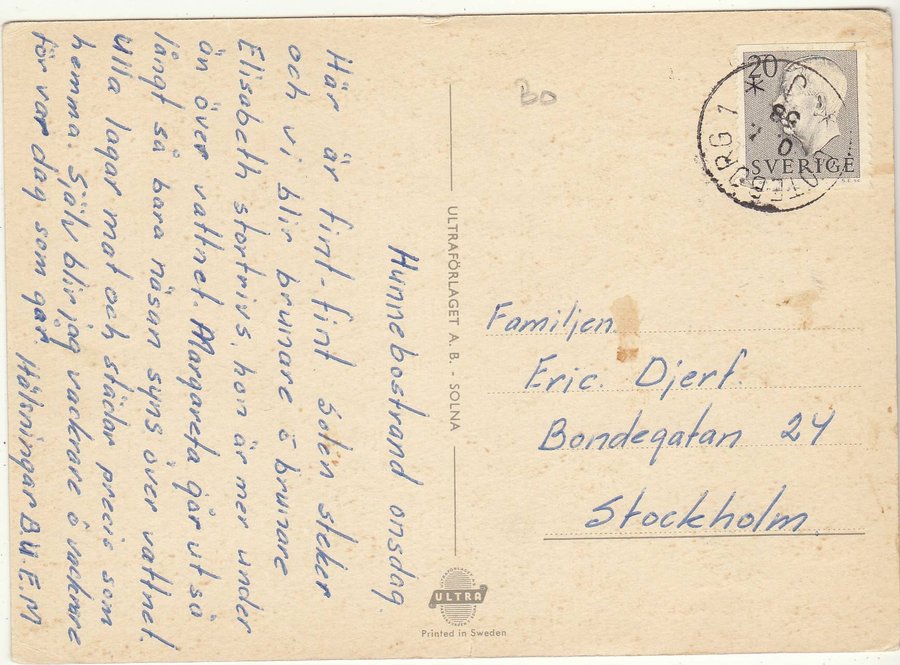 Hunnebostrand onsdag.
Här är fint-fint. Solen steker
och vi blir brunare o brunare
Elisabeth stortrivs, hon är mer under
än över vattnet. Margareta går ut så
långt så bara näsan syns över vattnet.
Ulla lagar mat och städar precis som
hemma. Själv blir jag vackrare o vackrare
för var dag som går. Hälsningar B.U.E.M
ULTRAFÖRLAGET A. B. - SOLNA
BO
20
SVERIGE
GÖTEBORG 1
58
Familjen
Eric. Djerf.
Bondegatan 24
Stockholm
ULTRA
Printed in Sweden